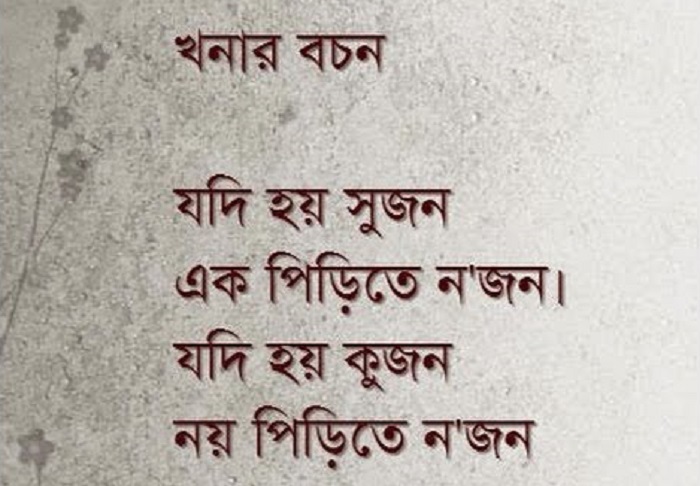 খনার বচন
যদি হয় সুজন
এক পিড়িতে ন'জন।
যদি হয় কুজন
নয় পিড়িতে ন'জন